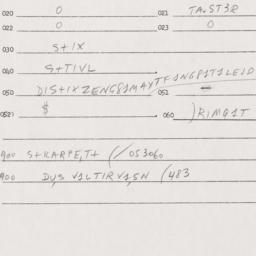 020 0 021 TA.ST38
022 0 023 0
030 S+IX
040 S+TIVL
050 DIS+IXZENG81MAYTF1NG81T1LEID
051 —
052 $ 060 )RIMQ1T
900 S+KARPE,T+ (/053060
900 DU,S V1LTIRV1,SN (483